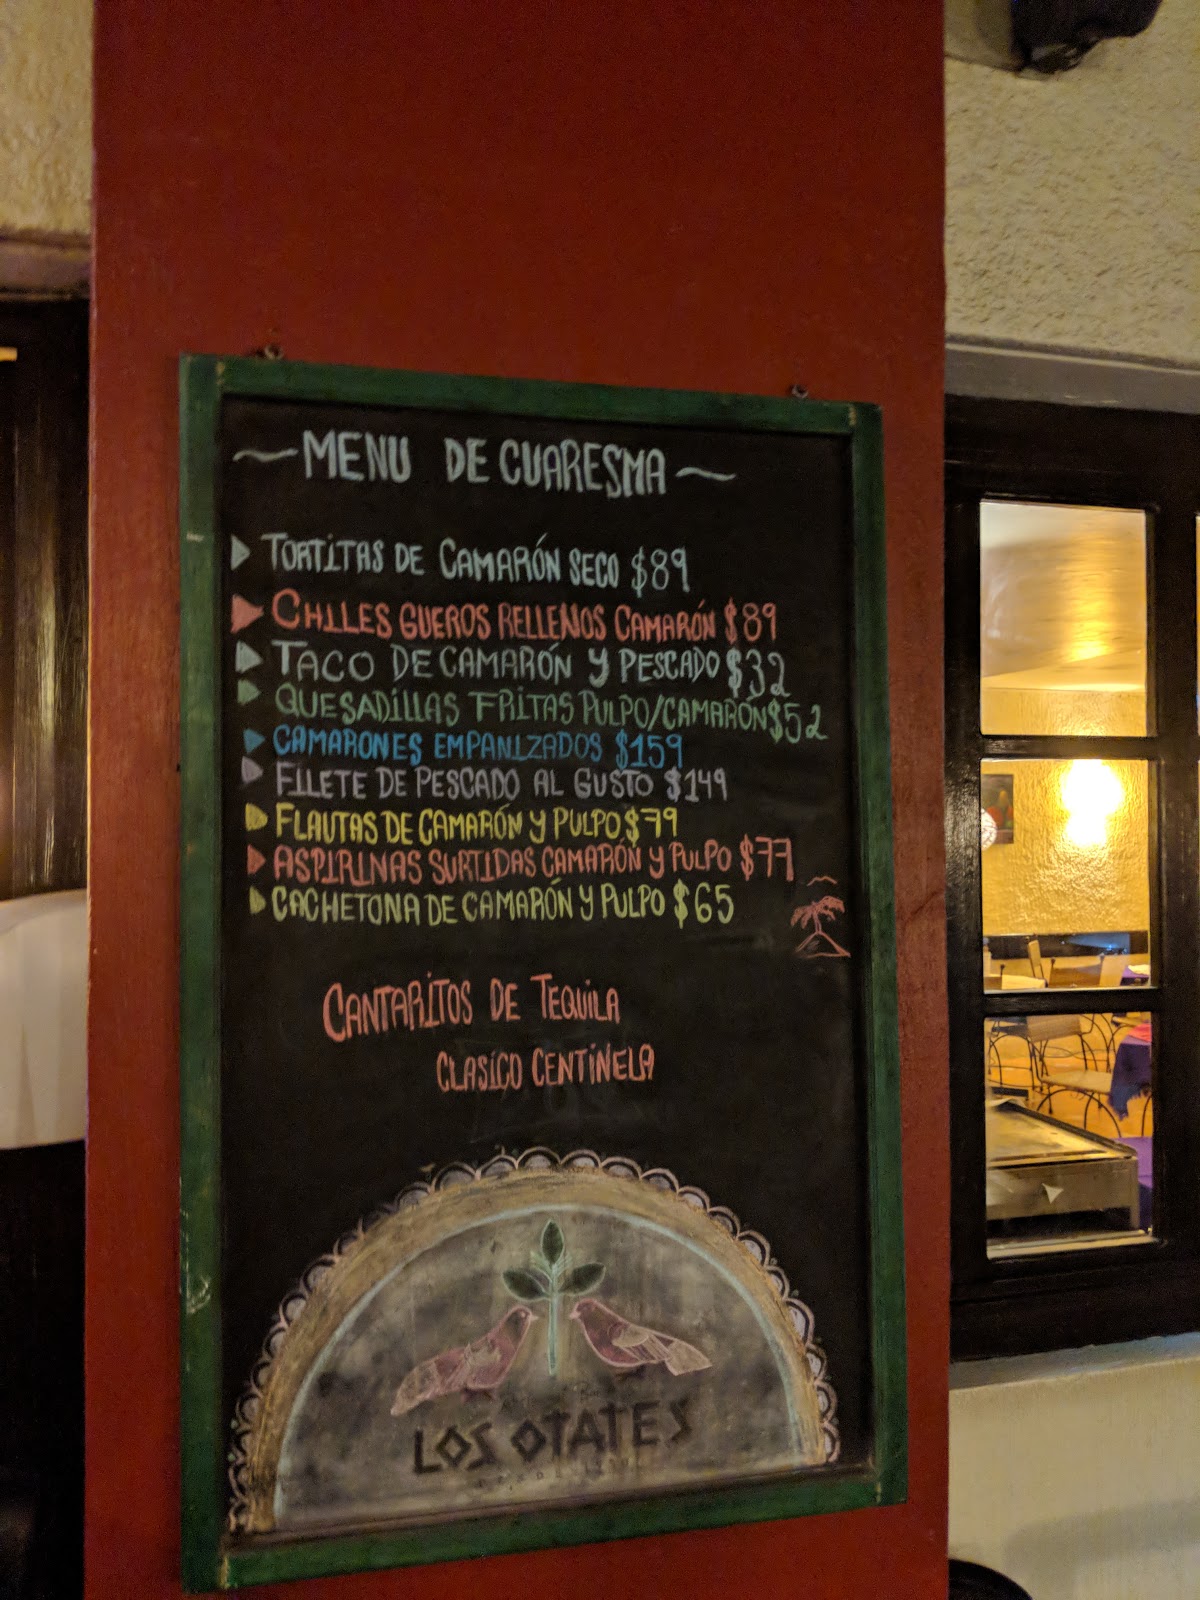 ~MENU DE CUARESMA~
TORTITAS DE CAMARÓN SECO $89
CHILES GUEROS RELLENOS CAMARÓN $89
TACO DE CAMARÓN Y PESCADO $32
QUESADILLAS FRITAS PULPO/CAMARÓN $52
CAMARONES EMPANIZADOS $159
FILETE DE PESCADO AL GUSTO $149
FLAUTAS DE CAMARÓN Y PULPO $79
ASPIRINAS SURTIDAS CAMARÓN Y PULPO $77
CACHETONA DE CAMARÓN Y PULPO $65
CANTARITOS DE TEQUILA
CLASICO CENTINELA
LOS OTATES